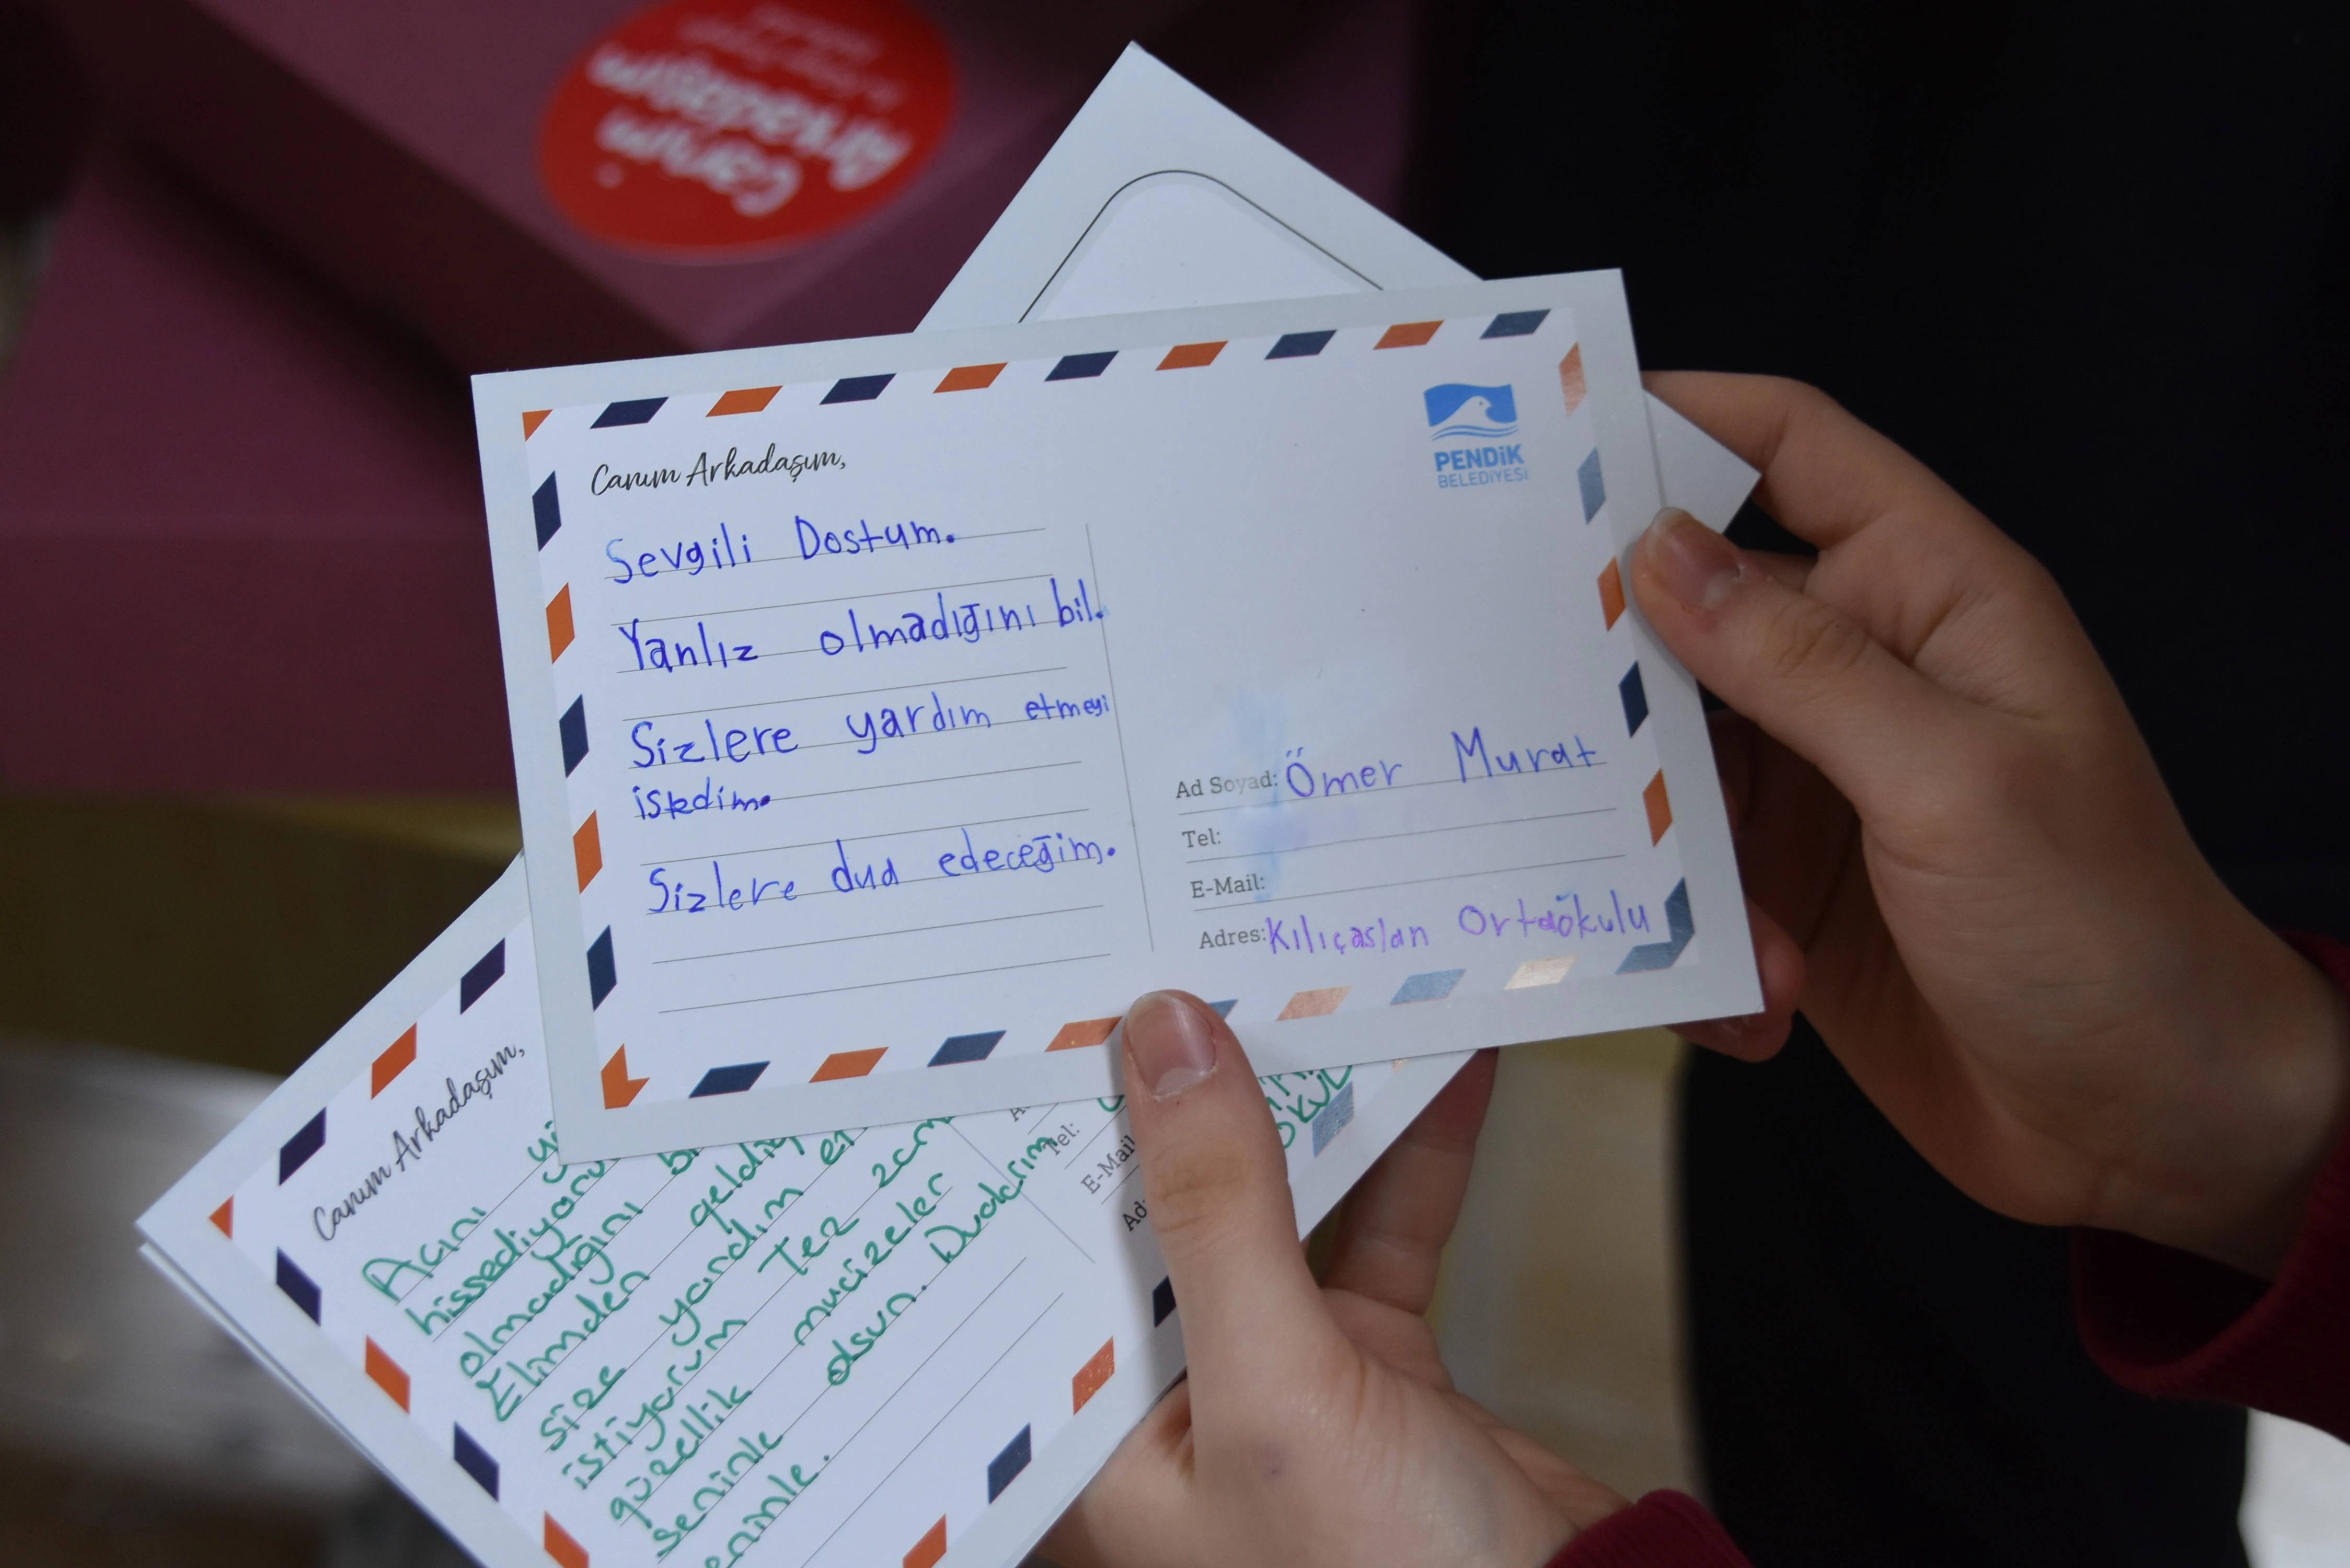 Canım
Arkadaşım
Canım Arkadaşım,
PENDİK
BELEDİYESİ
Sevgili Dostum.
Yanlız olmadığını bil.
Sizlere yardım etmeyi
istedim.
Sizlere dua edeceğim.
Ad Soyad: Ömer Murat
Tel:
E-Mail:
Adres: Kılıçaslan Ortaökulu
Canım Arkadaşım,
Acını
hissediyoru
olmadığını
Elimden geldiğ
size yardım
istiyorum Tez zam
güzellik mucizeler
seninle olsun. Dualarım
Tel:
E-Mail